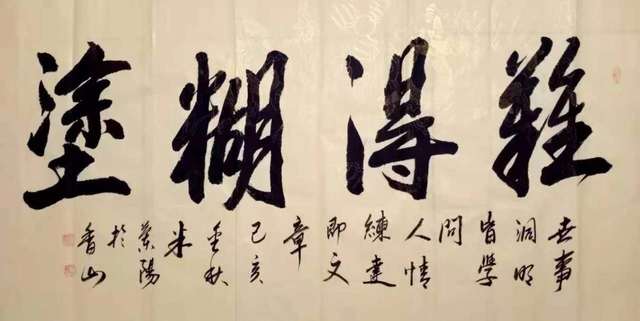 難得糊塗
世事
洞明
皆學
問
人情
練達
即文
章
己亥
金秋
米
陽
於
香山